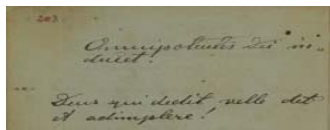 203
Omnipotentis Dei in-
ducet!
Deus qui dedit velle det
et adimplere!